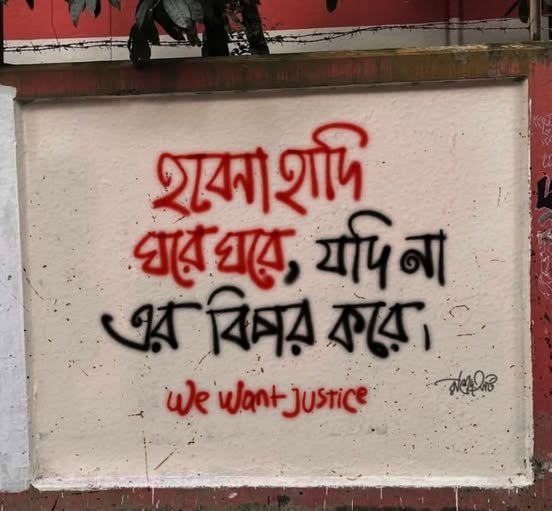 হবেনা হাদি
ঘরে ঘরে, যদি না
এর বিচার করে।
We Want Justice